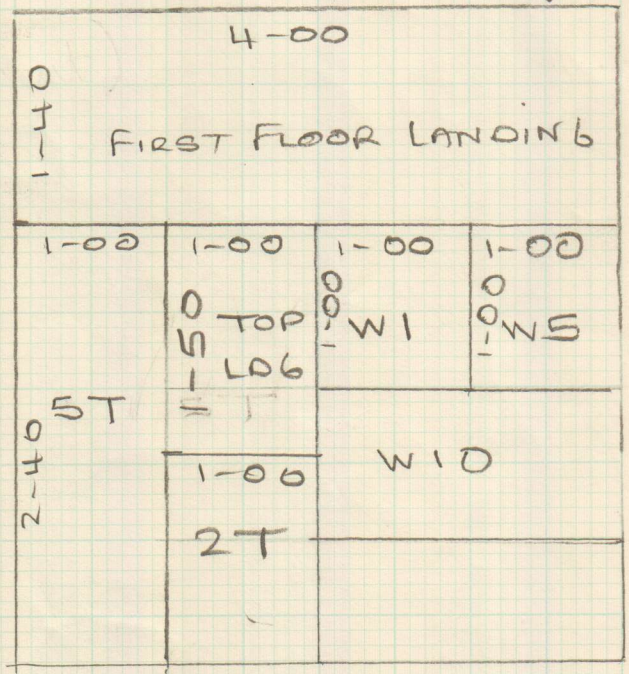 4-00
1-40
FIRST FLOOR LANDING
1-00
1-00
1-00
1-00
1-50
TOP
LDG
1-00
W1
1-00
W5
5T
5T
2-40
W10
1-00
2T